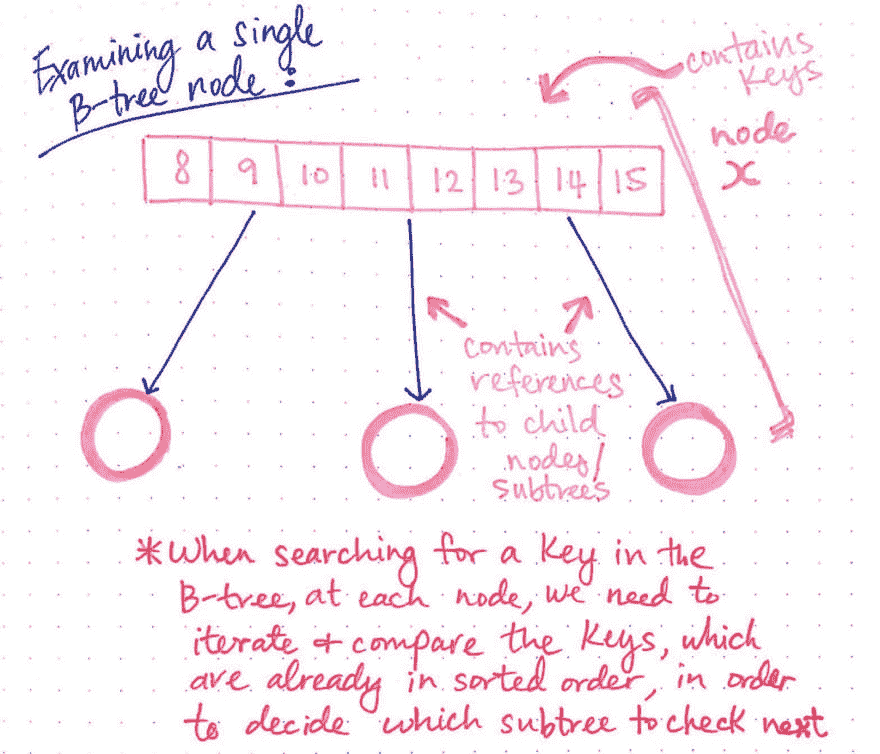 Examining a single
B-tree node:
contains
keys
node
x
8 9 10 11 12 13 14 15
contains
references
to child
nodes/
subtrees
*When searching for a key in the
B-tree, at each node, we need to
iterate + compare the keys, which
are already in sorted order, in order
to decide which subtree to check next